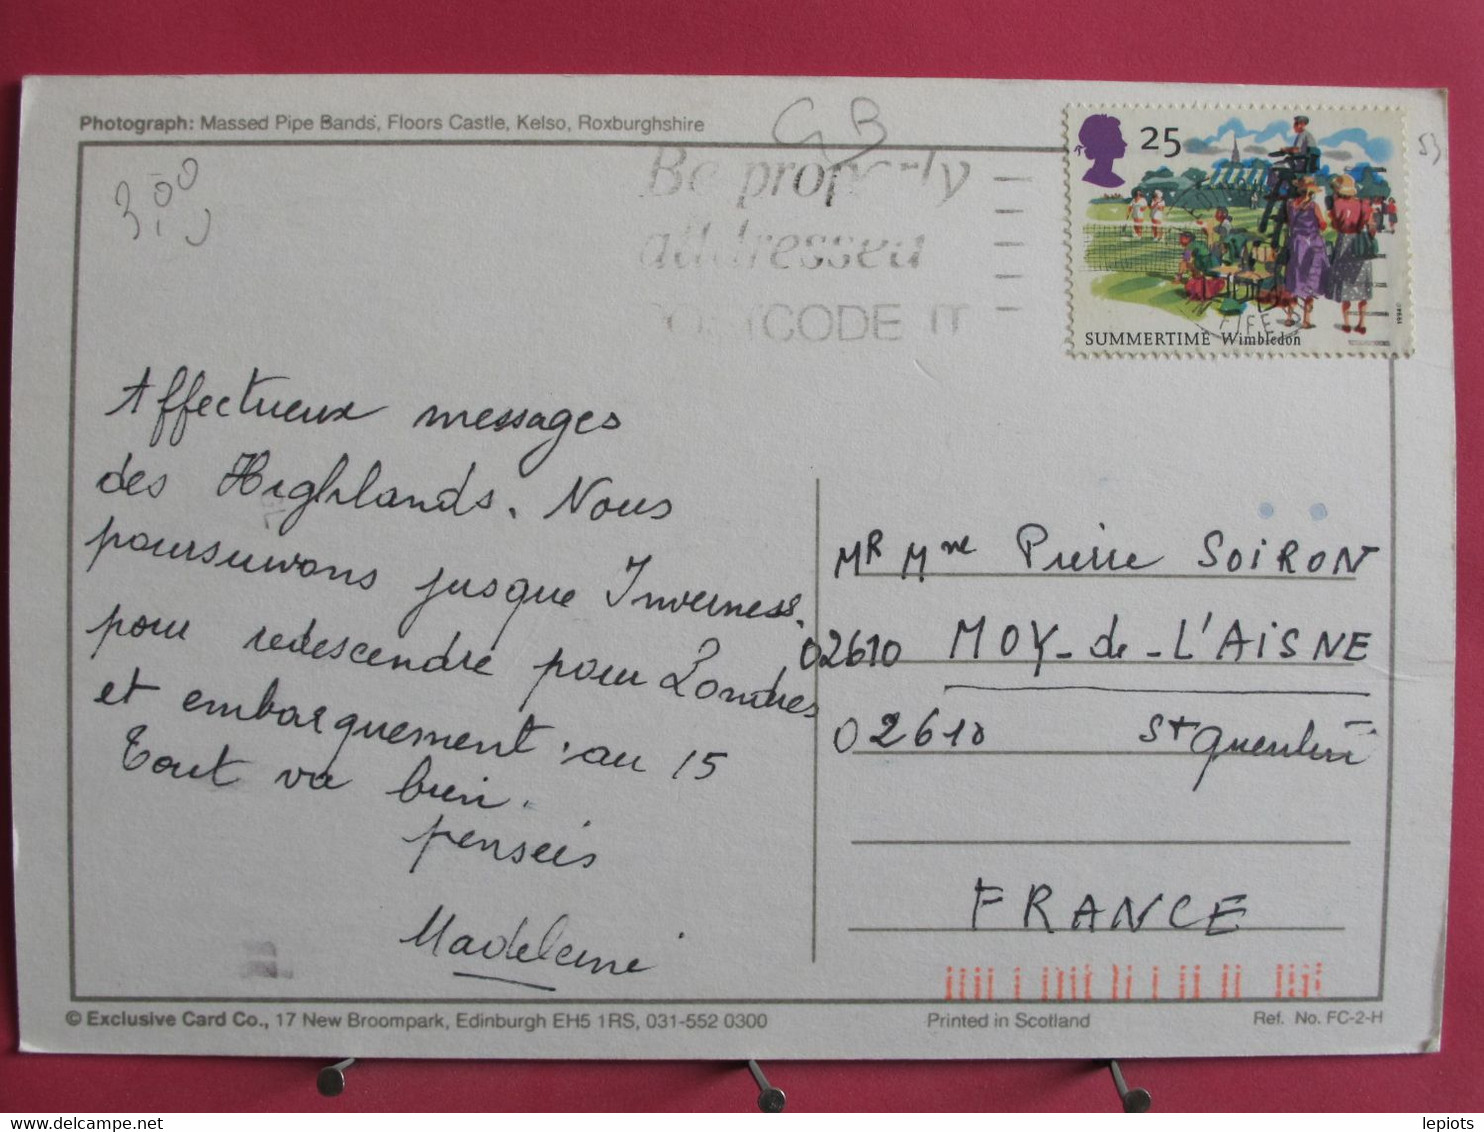 Photograph: Massed Pipe Bands, Floors Castle, Kelso, Roxburghshire
GB
Be properly
addressed
POSTCODE IT
25
SUMMERTIME Wimbledon
1994
FIFE
53
Affectueux messages
des Highlands. Nous
poursuivons jusque Inverness.
pour redescendre pour Londres
et embarquement au 15
Tout va bien.
pensées
Madeleine
MR Mme Pierre SOIRON
02610 MOY-de-L'AISNE
02610 St Quentin
FRANCE
© Exclusive Card Co., 17 New Broompark, Edinburgh EH5 1RS, 031-552 0300
Printed in Scotland
Ref. No. FC-2-H
lepiots